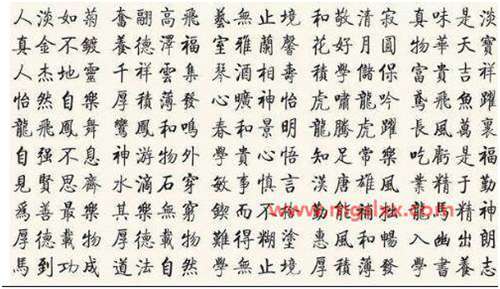 人淡如菊 奮翮高飛 藝無止境 和敬清寂 真味是淡
真金不鍍 養德澤福 室雅蘭馨 花好月圓 物華天寶
人杰地靈 千祥雲集 琴酒相壽 積學儲 富貴吉祥
怡然自樂 厚積薄發 心曠神怡 虎嘯龍吟 鳶飛魚躍
龍飛鳳舞 鸞鳳和鳴 春和景明 龍騰虎躍 長風萬裏
自强不息 神游物外 學貴心悟 知足常樂 吃虧是福
見賢思齊 水滴石穿 敏事慎言 漢唐雄風 業精于勤
爲善最樂 其樂無窮 鍥而不 能補 龍馬精神
厚德載物 厚德載物 難得糊塗 惠風和暢 入幽出朗
馬到功成 道法自然 學無止境 厚積薄發 學書養志